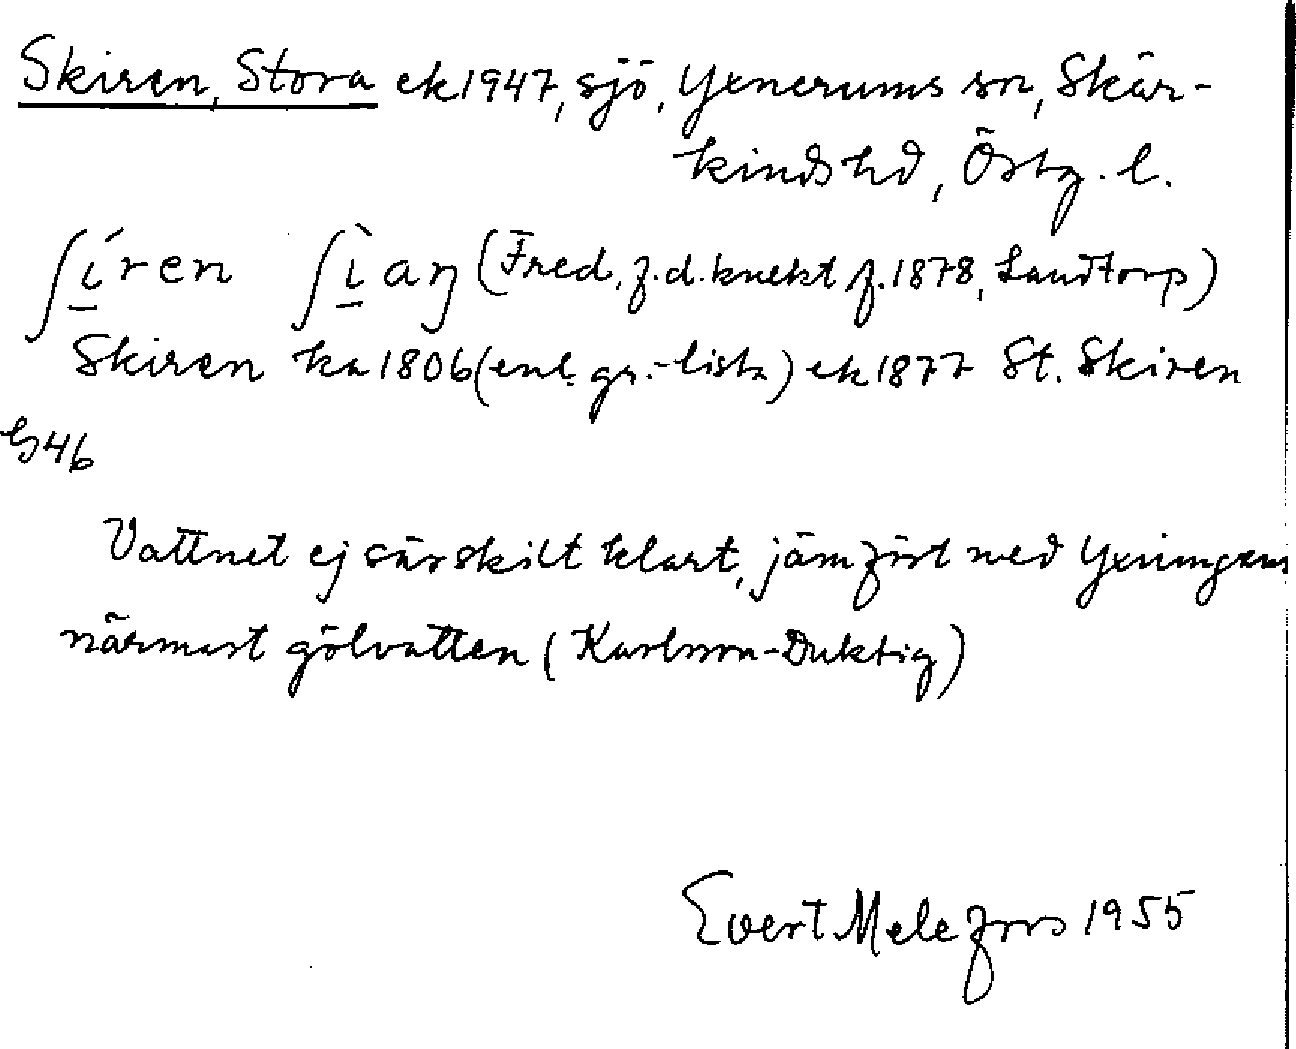 Skiren, Stora ek 1947, sjö, Yxnerums sn, Skär-
kinds hd, Östg. l.
ʃíren ʃìaŋ (Fred, f.d. knekt f. 1878, Sandtorp)
Skiren ka 1806 (enl. gr.-lista) ek 1877 St. Skiren
h46
Vattnet ej särskilt klart, jämfört med Yxningens
närmast gölvatten (Karlsson-Duktig)
Evert Melefors 1955